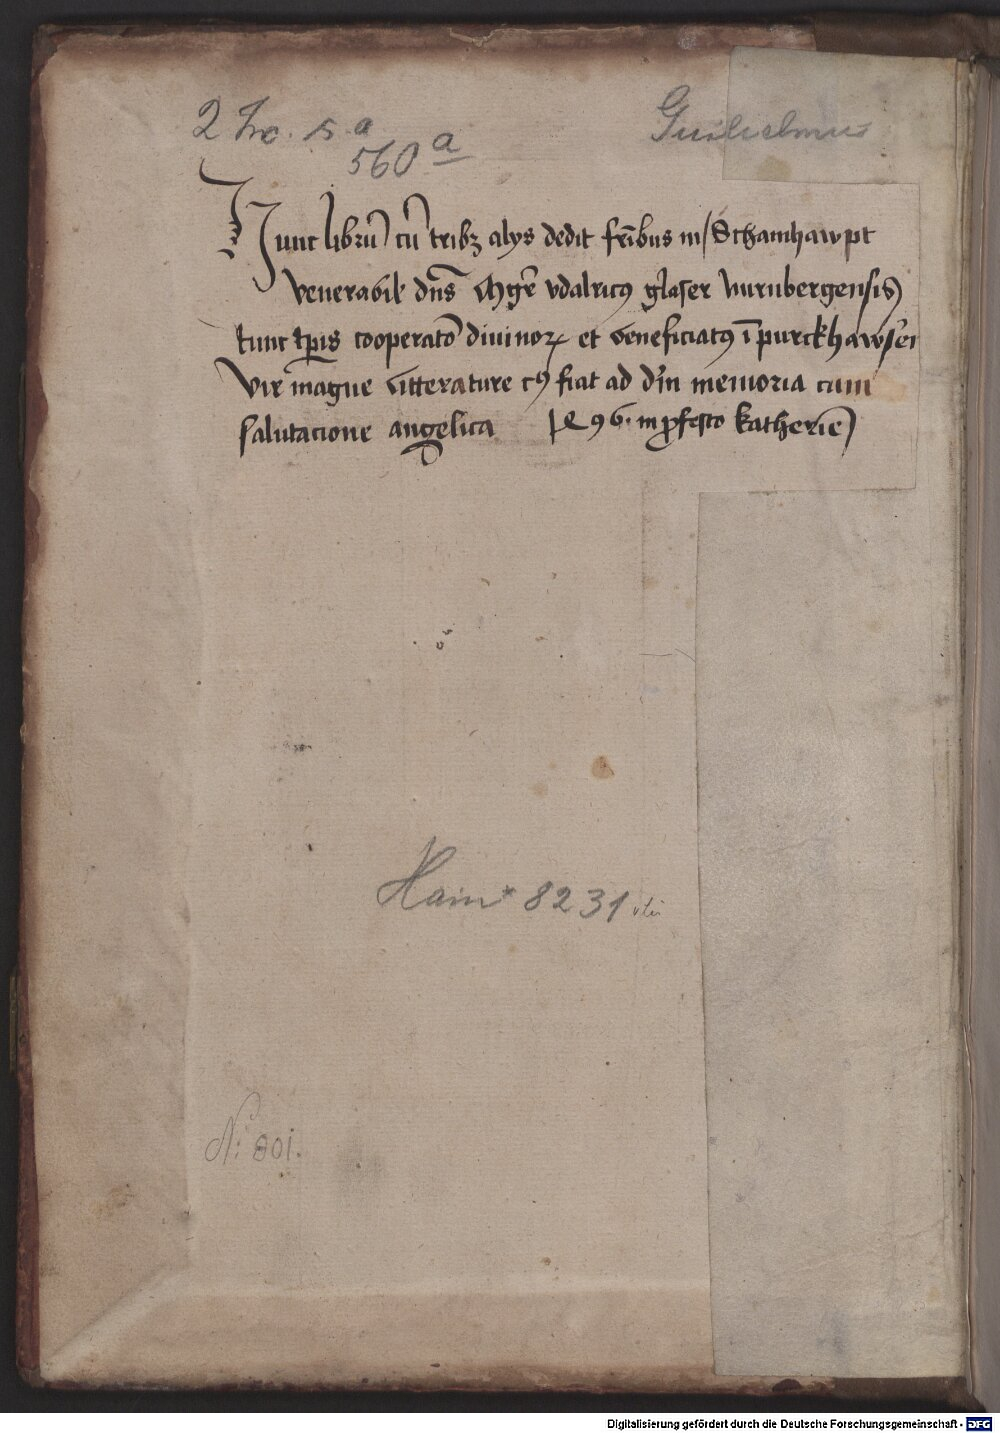 2 Inc. s. a.
560 a
Guilielmus
Hunc librū cū tribꝫ alys dedit fr̄ibus in Schamhawpt
venerabil dn̄s Mgr̄ vdalricꝰ glaser Nurnbergensis
tunc tꝑis cooperato᷑ diuinoꝝ et beneficiatꝰ ī purckhawsen
Vir magne litterature cꝰ fiat ad dn̄ memoria cum
salutacione angelica 1496 in ꝓfesto katherīe
Hain* 8231
N: 801.
Digitalisierung gefördert durch die Deutsche Forschungsgemeinschaft - DFG